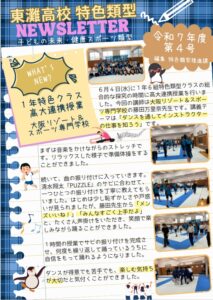 東灘高校 特色類型
NEWSLETTER
子どもの未来・健康スポーツ類型
令和7年度
第4号
編集 特色類型推進部
WHAT'S
NEW?
1年特色クラス
高大連携授業
大阪リゾート&
スポーツ専門学校
6月4日(水)に1年6組特色類型クラスの総
合的な探究の時間に高大連携授業を行いま
した。今回の講師は大阪リゾート&スポー
ツ専門学校の藤田先生です。講義テ
ーマは「ダンスを通してインストラクター
の仕事を知ろう」です。
まずは音楽をかけながらのストレッチで
す。リラックスした様子で準備体操をする
ことができました。
続いて、曲の振り付けに入っていきます。
清水翔太「PUZZLE」のサビに合わせて、
一つひとつの振り付けを丁寧に教えてもら
いました。はじめは少し恥ずかしさや戸惑
いが見られましたが、藤田先生から「メン
ズいいね!」「みんなすごく上手だよ」
と、たくさん声掛けをいただき、笑顔で楽
しみながら踊ることができました。
1時間の授業でサビの振り付けを完成さ
せ、何度も繰り返して踊っているうちに
自信をもって踊れるようになりました。
ダンスが得意でも苦手でも、楽しむ気持ち
が大切だと気付くことができました。